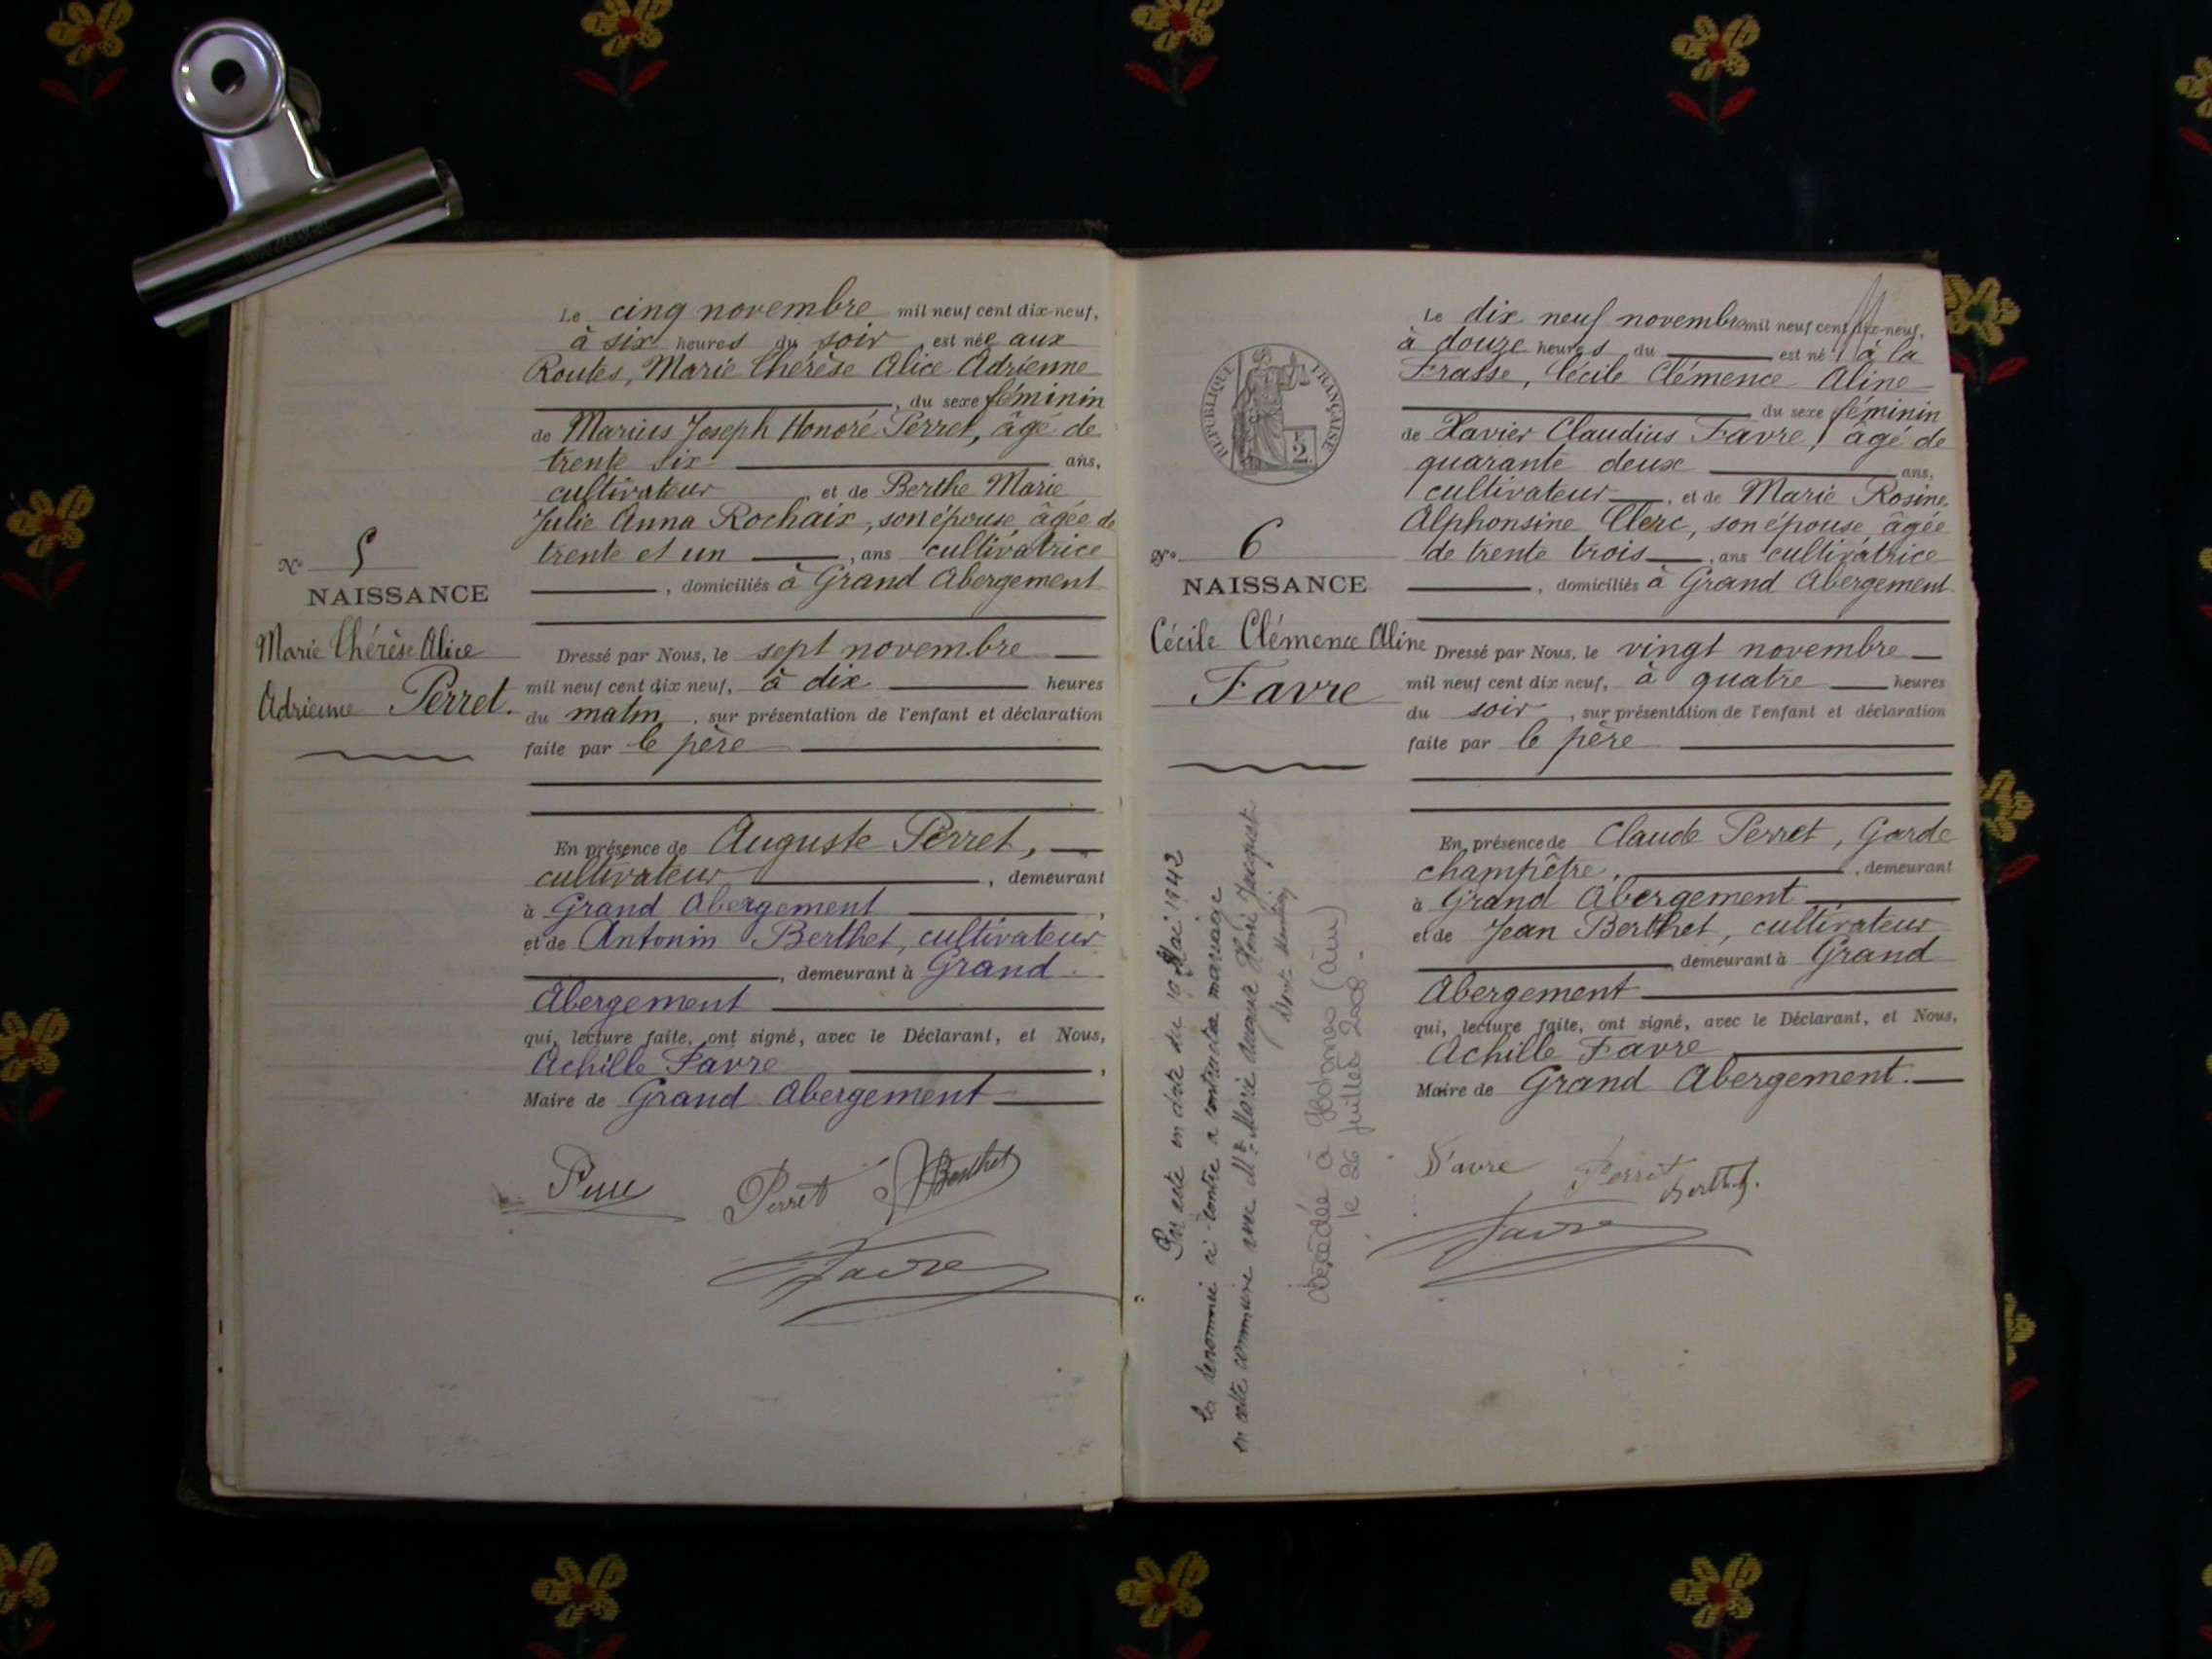 Le cinq novembre mil neuf cent dix-neuf,
à six heures du soir est née aux
Routes, Marie Thérèse Alice Adrienne
, du sexe féminin
de Marius Joseph Honoré Perret, âgé de
trente six ans,
cultivateur, et de Berthe Marie
Julie Anna Rochaix, son épouse âgée de
trente et un, ans cultivatrice
, domiciliés à Grand Abergement
N° 5
NAISSANCE
Marie Thérèse Alice
Adrienne Perret.
Dressé par Nous, le sept novembre
mil neuf cent dix neuf, à dix heures
du matin, sur présentation de l'enfant et déclaration
faite par le père
En présence de Auguste Perret,
cultivateur, demeurant
à Grand Abergement,
et de Antonin Berthet, cultivateur
, demeurant à Grand
Abergement
qui, lecture faite, ont signé, avec le Déclarant, et Nous,
Achille Favre,
Maire de Grand Abergement
Perret Berthet
Favre
Le dix neuf novembre mil neuf cent dix-neuf,
à douze heures du est né à la
Frasse, Cécile Clémence Aline
du sexe féminin
de Xavier Claudius Favre, âgé de
quarante deux ans,
cultivateur, et de Marie Rosine
Alphonsine Clerc, son épouse âgée
de trente trois, ans cultivatrice
, domiciliés à Grand Abergement
REPUBLIQUE FRANÇAISE
N° 6
NAISSANCE
Cécile Clémence Aline
Favre
Dressé par Nous, le vingt novembre
mil neuf cent dix neuf, à quatre heures
du soir, sur présentation de l'enfant et déclaration
faite par le père
En présence de Claude Perret, Garde
champêtre, demeurant
à Grand Abergement
et de Jean Berthet, cultivateur
, demeurant à Grand
Abergement
qui, lecture faite, ont signé, avec le Déclarant, et Nous,
Achille Favre
Maire de Grand Abergement.
Favre Perret Berthet
Favre
Par acte en date du 19 Mai 1942
la dénommée ci-contre a contracté mariage
en cette commune avec Mr Marie Auguste Henri Jacquet
Dont Mention
Décédée à (Ain)
le 26 juillet 2008.